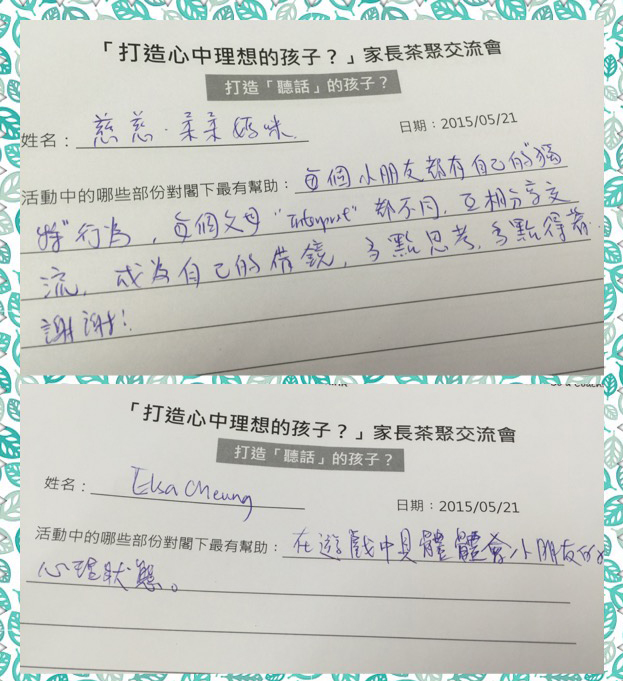 「打造心中理想的孩子？」家長茶聚交流會
打造「聽話」的孩子？
姓名：慈慈．柔柔媽咪
日期：2015/05/21
活動中的哪些部份對閣下最有幫助：每個小朋友都有自己的"獨
特"行為，每個父母"Interpret"都不同，互相分享交
流，成為自己的借鏡，多點思考，多點得着
謝謝！
「打造心中理想的孩子？」家長茶聚交流會
打造「聽話」的孩子？
姓名：Elsa Cheung
日期：2015/05/21
活動中的哪些部份對閣下最有幫助：在遊戲中具體體會小朋友的
心理狀態。